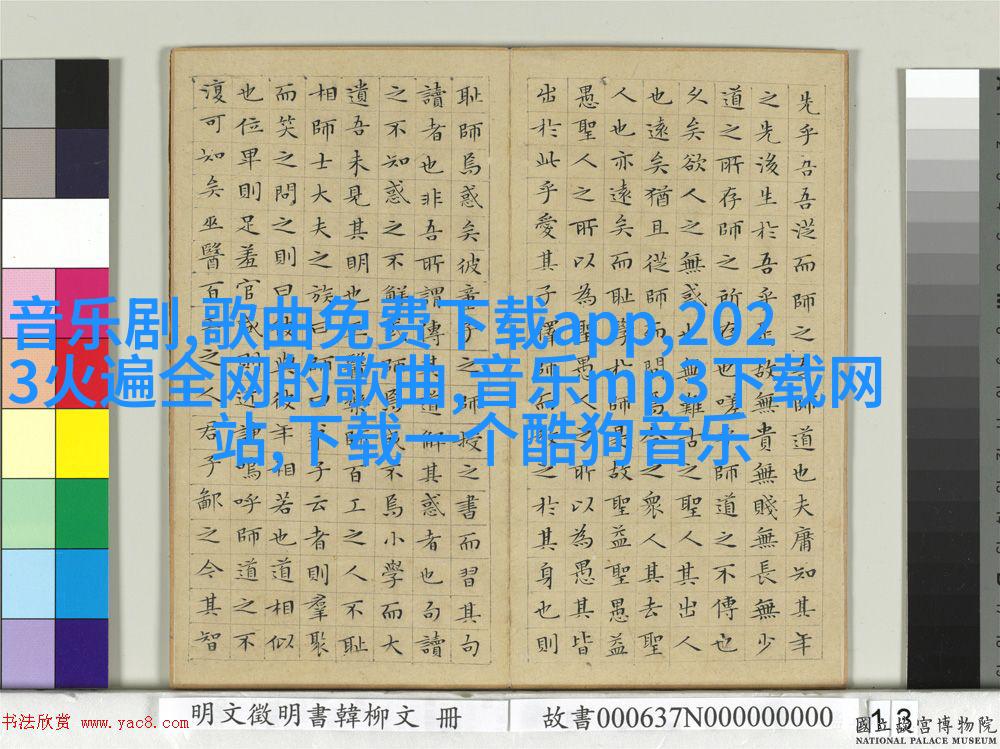 音乐剧,歌曲免费下载app,202
3火遍全网的歌曲,音乐mp3下载网
站,下载一个酷狗音乐
先乎吾吾從而師之師道也夫庸知其年
之先後生於吾乎是故無貴無賤無長無少
道之所存師之所存也嗟師道之不傳也
久矣欲人之無惑也無難古之聖人其出人
也遠矣猶且從師而問焉之衆人其去聖
人也亦遠矣而恥學於師是故聖益聖愚益
愚聖人之所以為聖愚人之所以為愚其皆
出於此乎愛其子擇師而教之於其身也則
恥師焉惑矣彼童子之師授之書而習其句
讀者也非吾所謂傳其道解其惑者也句讀
之不知惑之不解或師焉或不焉小學而大
遺吾未見其明也巫醫樂師百工之人不恥
相師士大夫之族曰師曰弟子云者則羣聚
而笑之問之則曰彼與彼年相若也道相似
也位卑則足羞官盛則近諛嗚呼師道之不
復可知矣巫醫百工之人君子鄙之今其智
明文徵明書韓柳文 冊
故書000637N000000000
13
书法欣赏 www.yac8.com
國立故宮博物院
NATIONAL PALACE MUSEUM